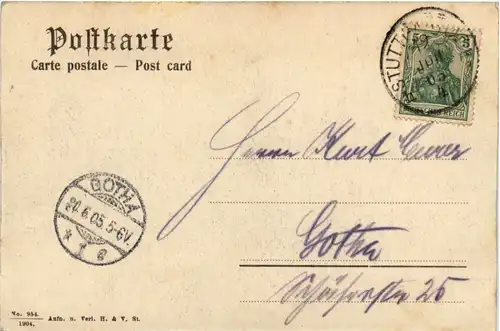 Postkarte
Carte postale — Post card
STUTTGART
JUN
05
5
REICH
Herrn Kurt
GOTHA
20.6.05.5-6V.
* 1 e
Gotha
No. 954.
1904.
Aufn. u. Verl. H. & V. St.